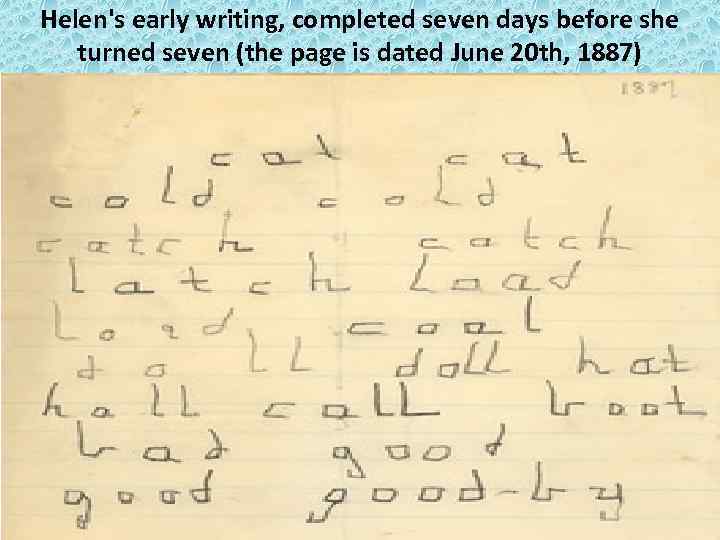 Helen's early writing, completed seven days before she
turned seven (the page is dated June 20 th, 1887)
1887
cat cat
cold cold
catch catch
latch load
load coal
doll doll hat
hall call boot
bad good
good good-by